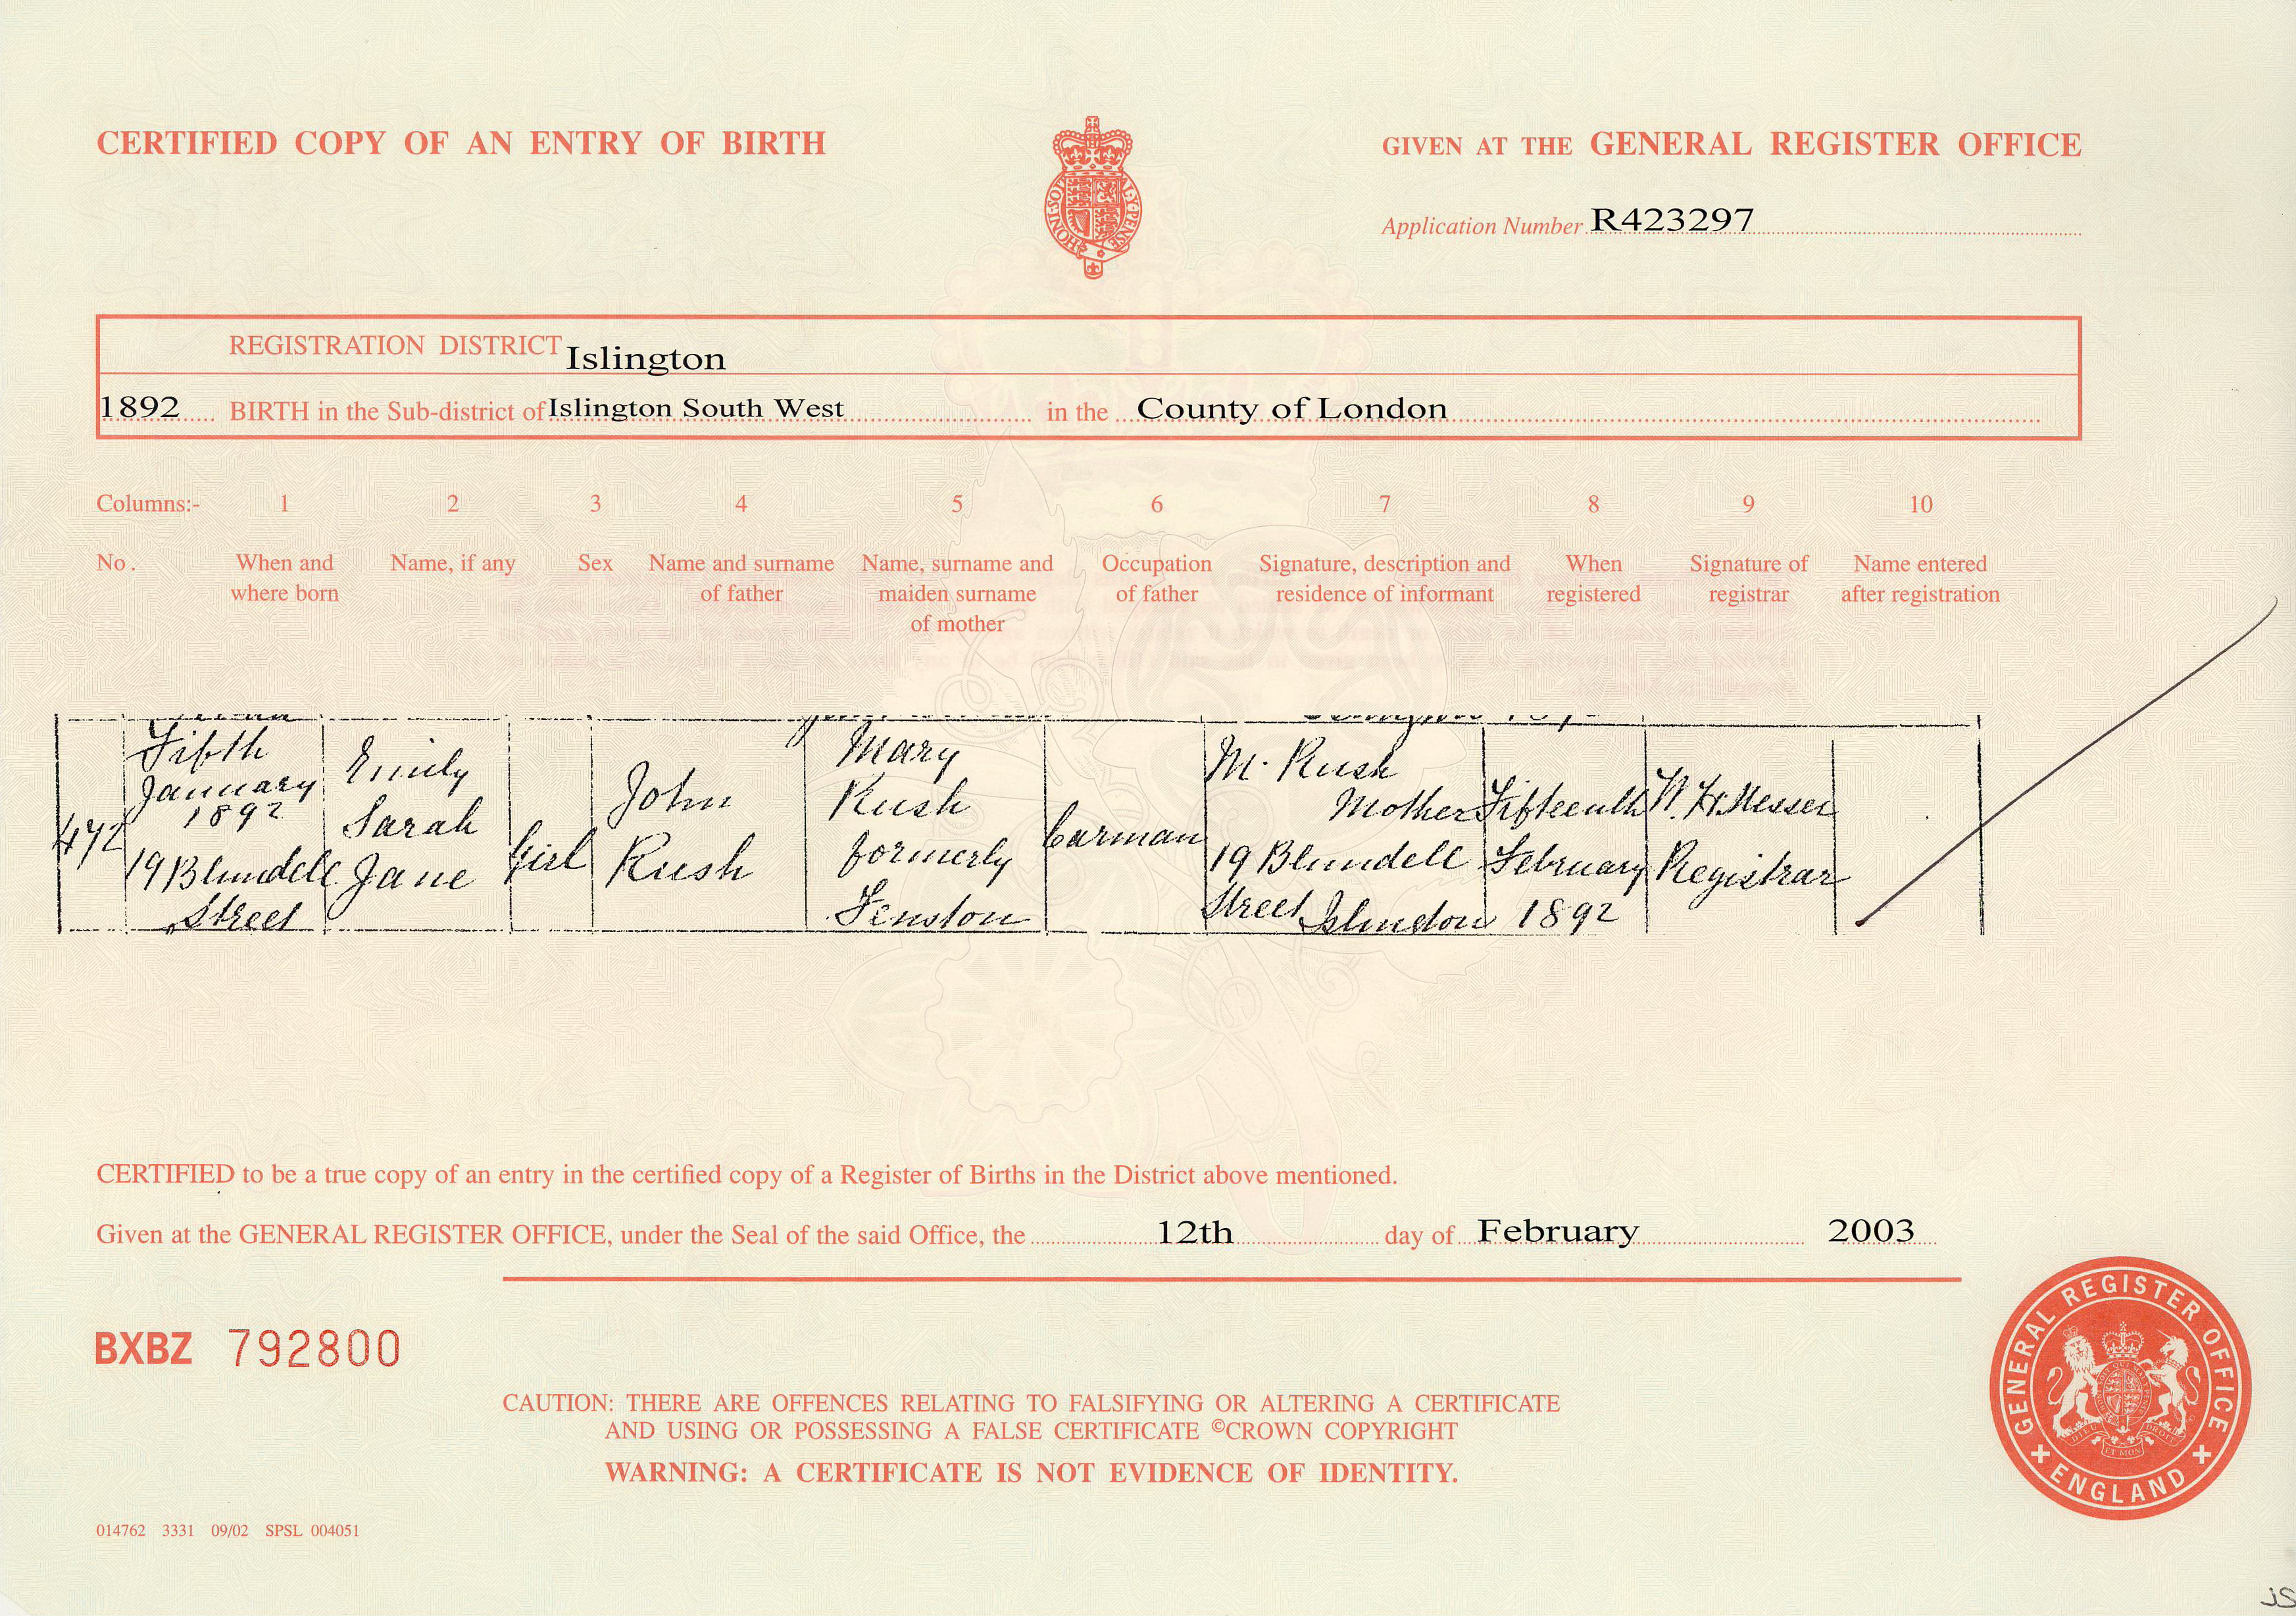 CERTIFIED COPY OF AN ENTRY OF BIRTH
GIVEN AT THE GENERAL REGISTER OFFICE
HONI·SOIT
AL·Y·PENSE
Application Number R423297
REGISTRATION DISTRICT Islington
1892 BIRTH in the Sub-district of Islington South West in the County of London
Columns:- 1 2 3 4 5 6 7 8 9 10
No. When and where born Name, if any Sex Name and surname of father Name, surname and maiden surname of mother Occupation of father Signature, description and residence of informant When registered Signature of registrar Name entered after registration
472
Fifth
January
1892
19 Blundell
Street
Emily
Sarah
Jane
Girl
John
Rush
Mary
Rush
formerly
Fenston
Carman
M. Rush
Mother
19 Blundell
Street Islington
Fifteenth
February
1892
W. H. Messer
Registrar
CERTIFIED to be a true copy of an entry in the certified copy of a Register of Births in the District above mentioned.
Given at the GENERAL REGISTER OFFICE, under the Seal of the said Office, the 12th day of February 2003
BXBZ 792800
CAUTION: THERE ARE OFFENCES RELATING TO FALSIFYING OR ALTERING A CERTIFICATE
AND USING OR POSSESSING A FALSE CERTIFICATE ©CROWN COPYRIGHT
WARNING: A CERTIFICATE IS NOT EVIDENCE OF IDENTITY.
GENERAL REGISTER OFFICE
ENGLAND
014762 3331 09/02 SPSL 004051